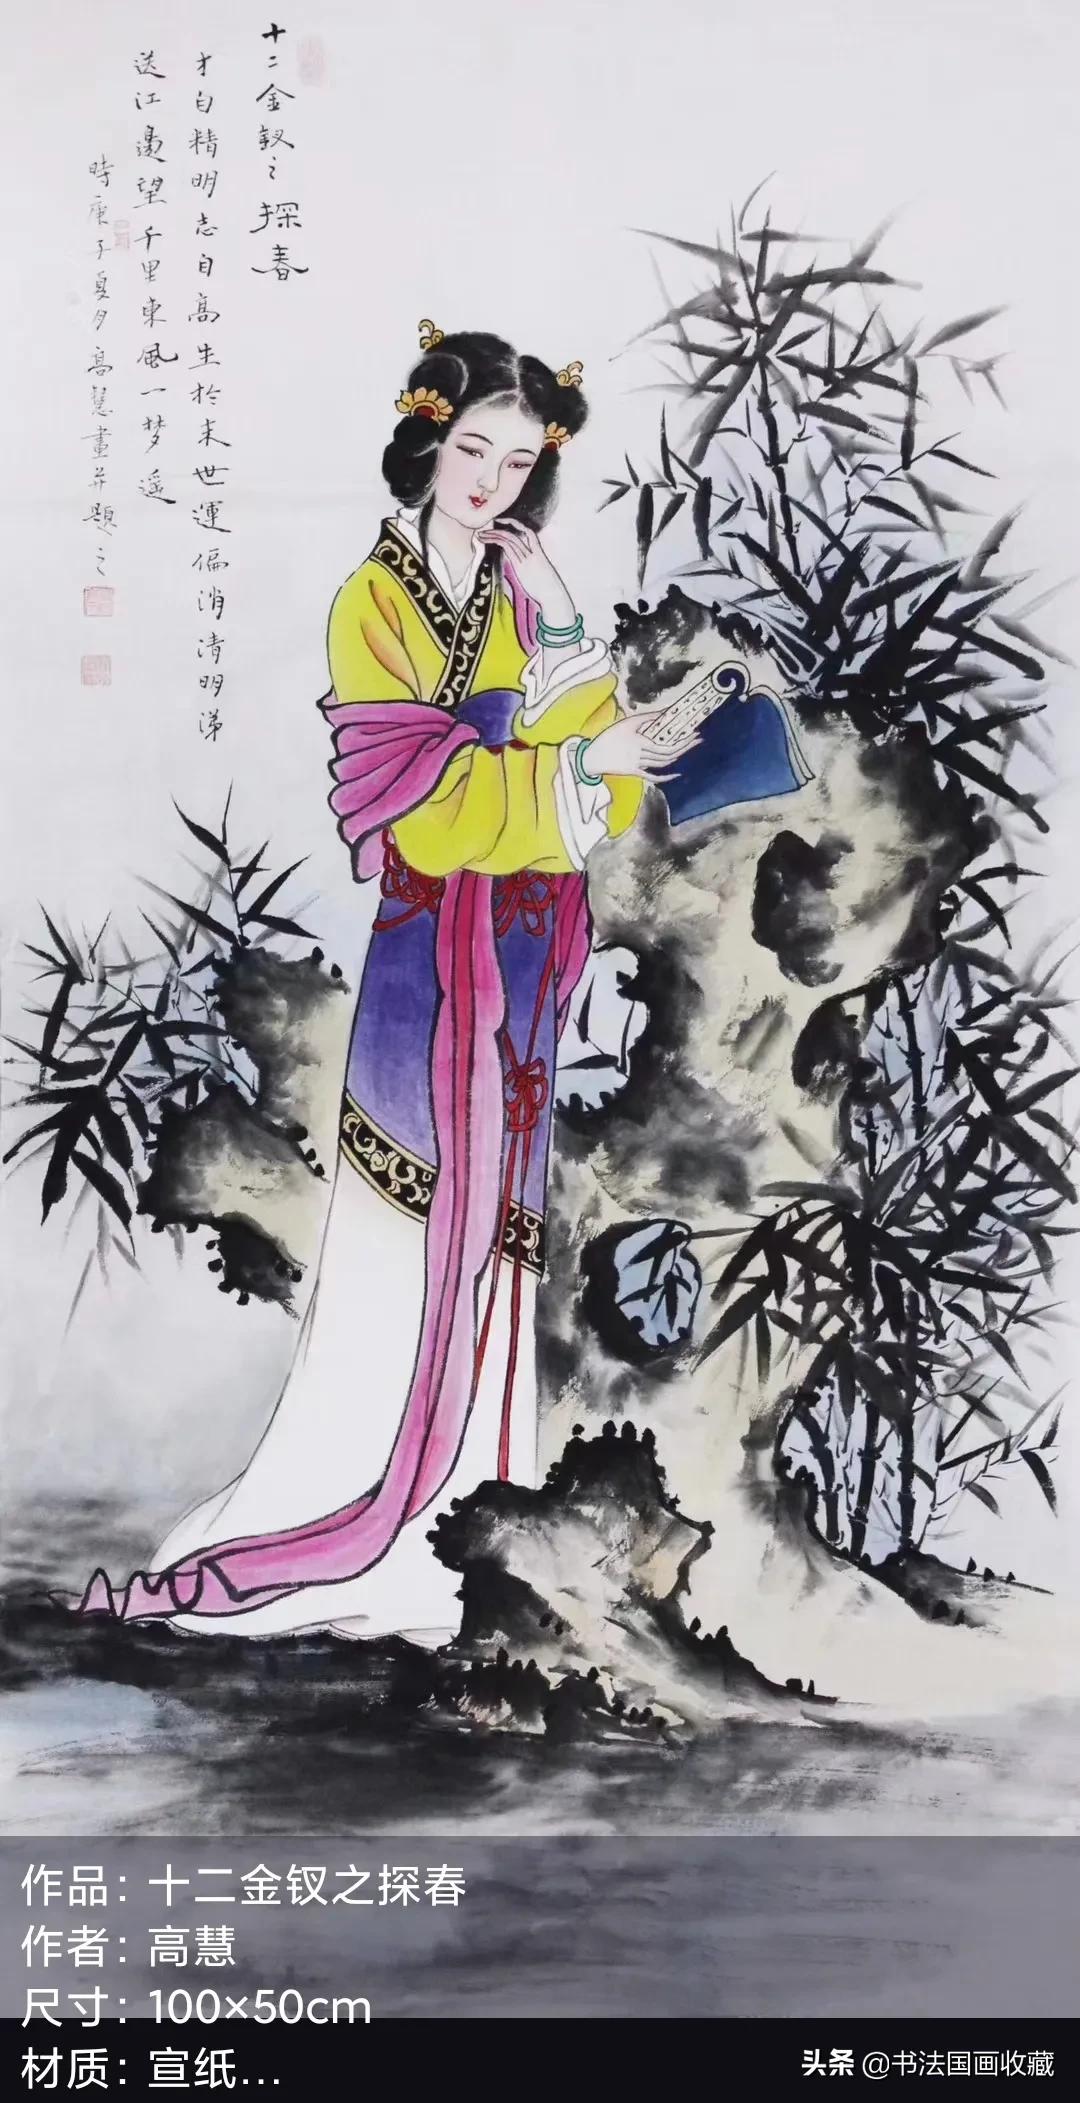 十二金釵之探春
才自精明志自高生於末世運偏消清明涕
送江邊望千里東風一梦遥
時庚子夏月高慧畫并題之
作品：十二金钗之探春
作者：高慧
尺寸：100×50cm
材质：宣纸...
头条 @书法国画收藏